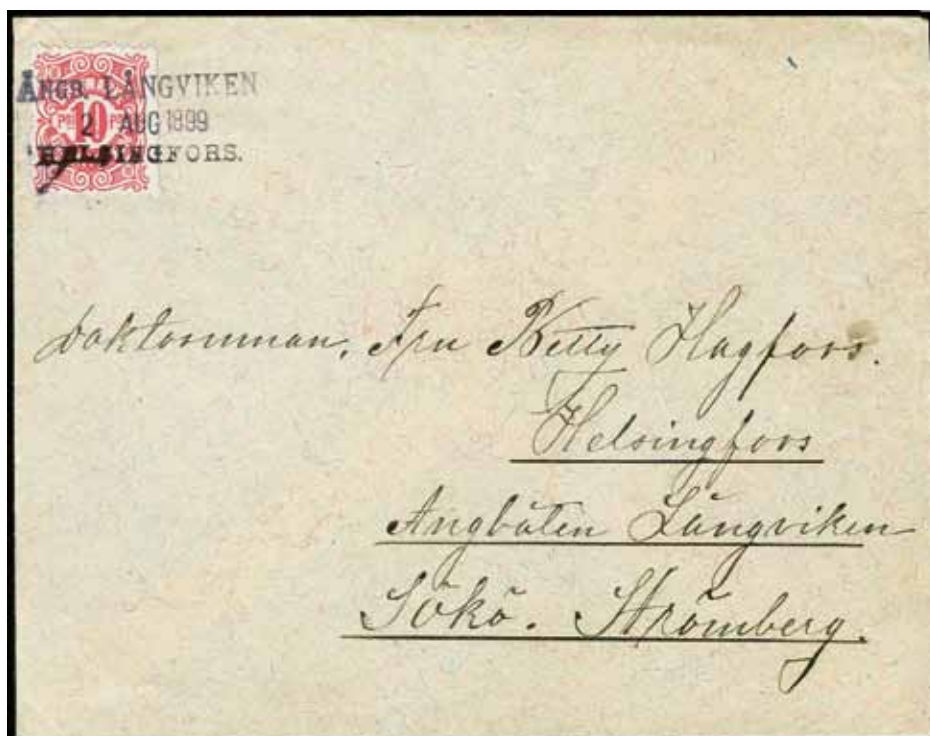 ÅNGB. LÅNGVIKEN
2 AUG 1899
HELSINGFORS.
10
Doktorinnan, Fru Betty Hagfors.
Helsingfors
Angbåten Långviken
Sökö. Strömberg.